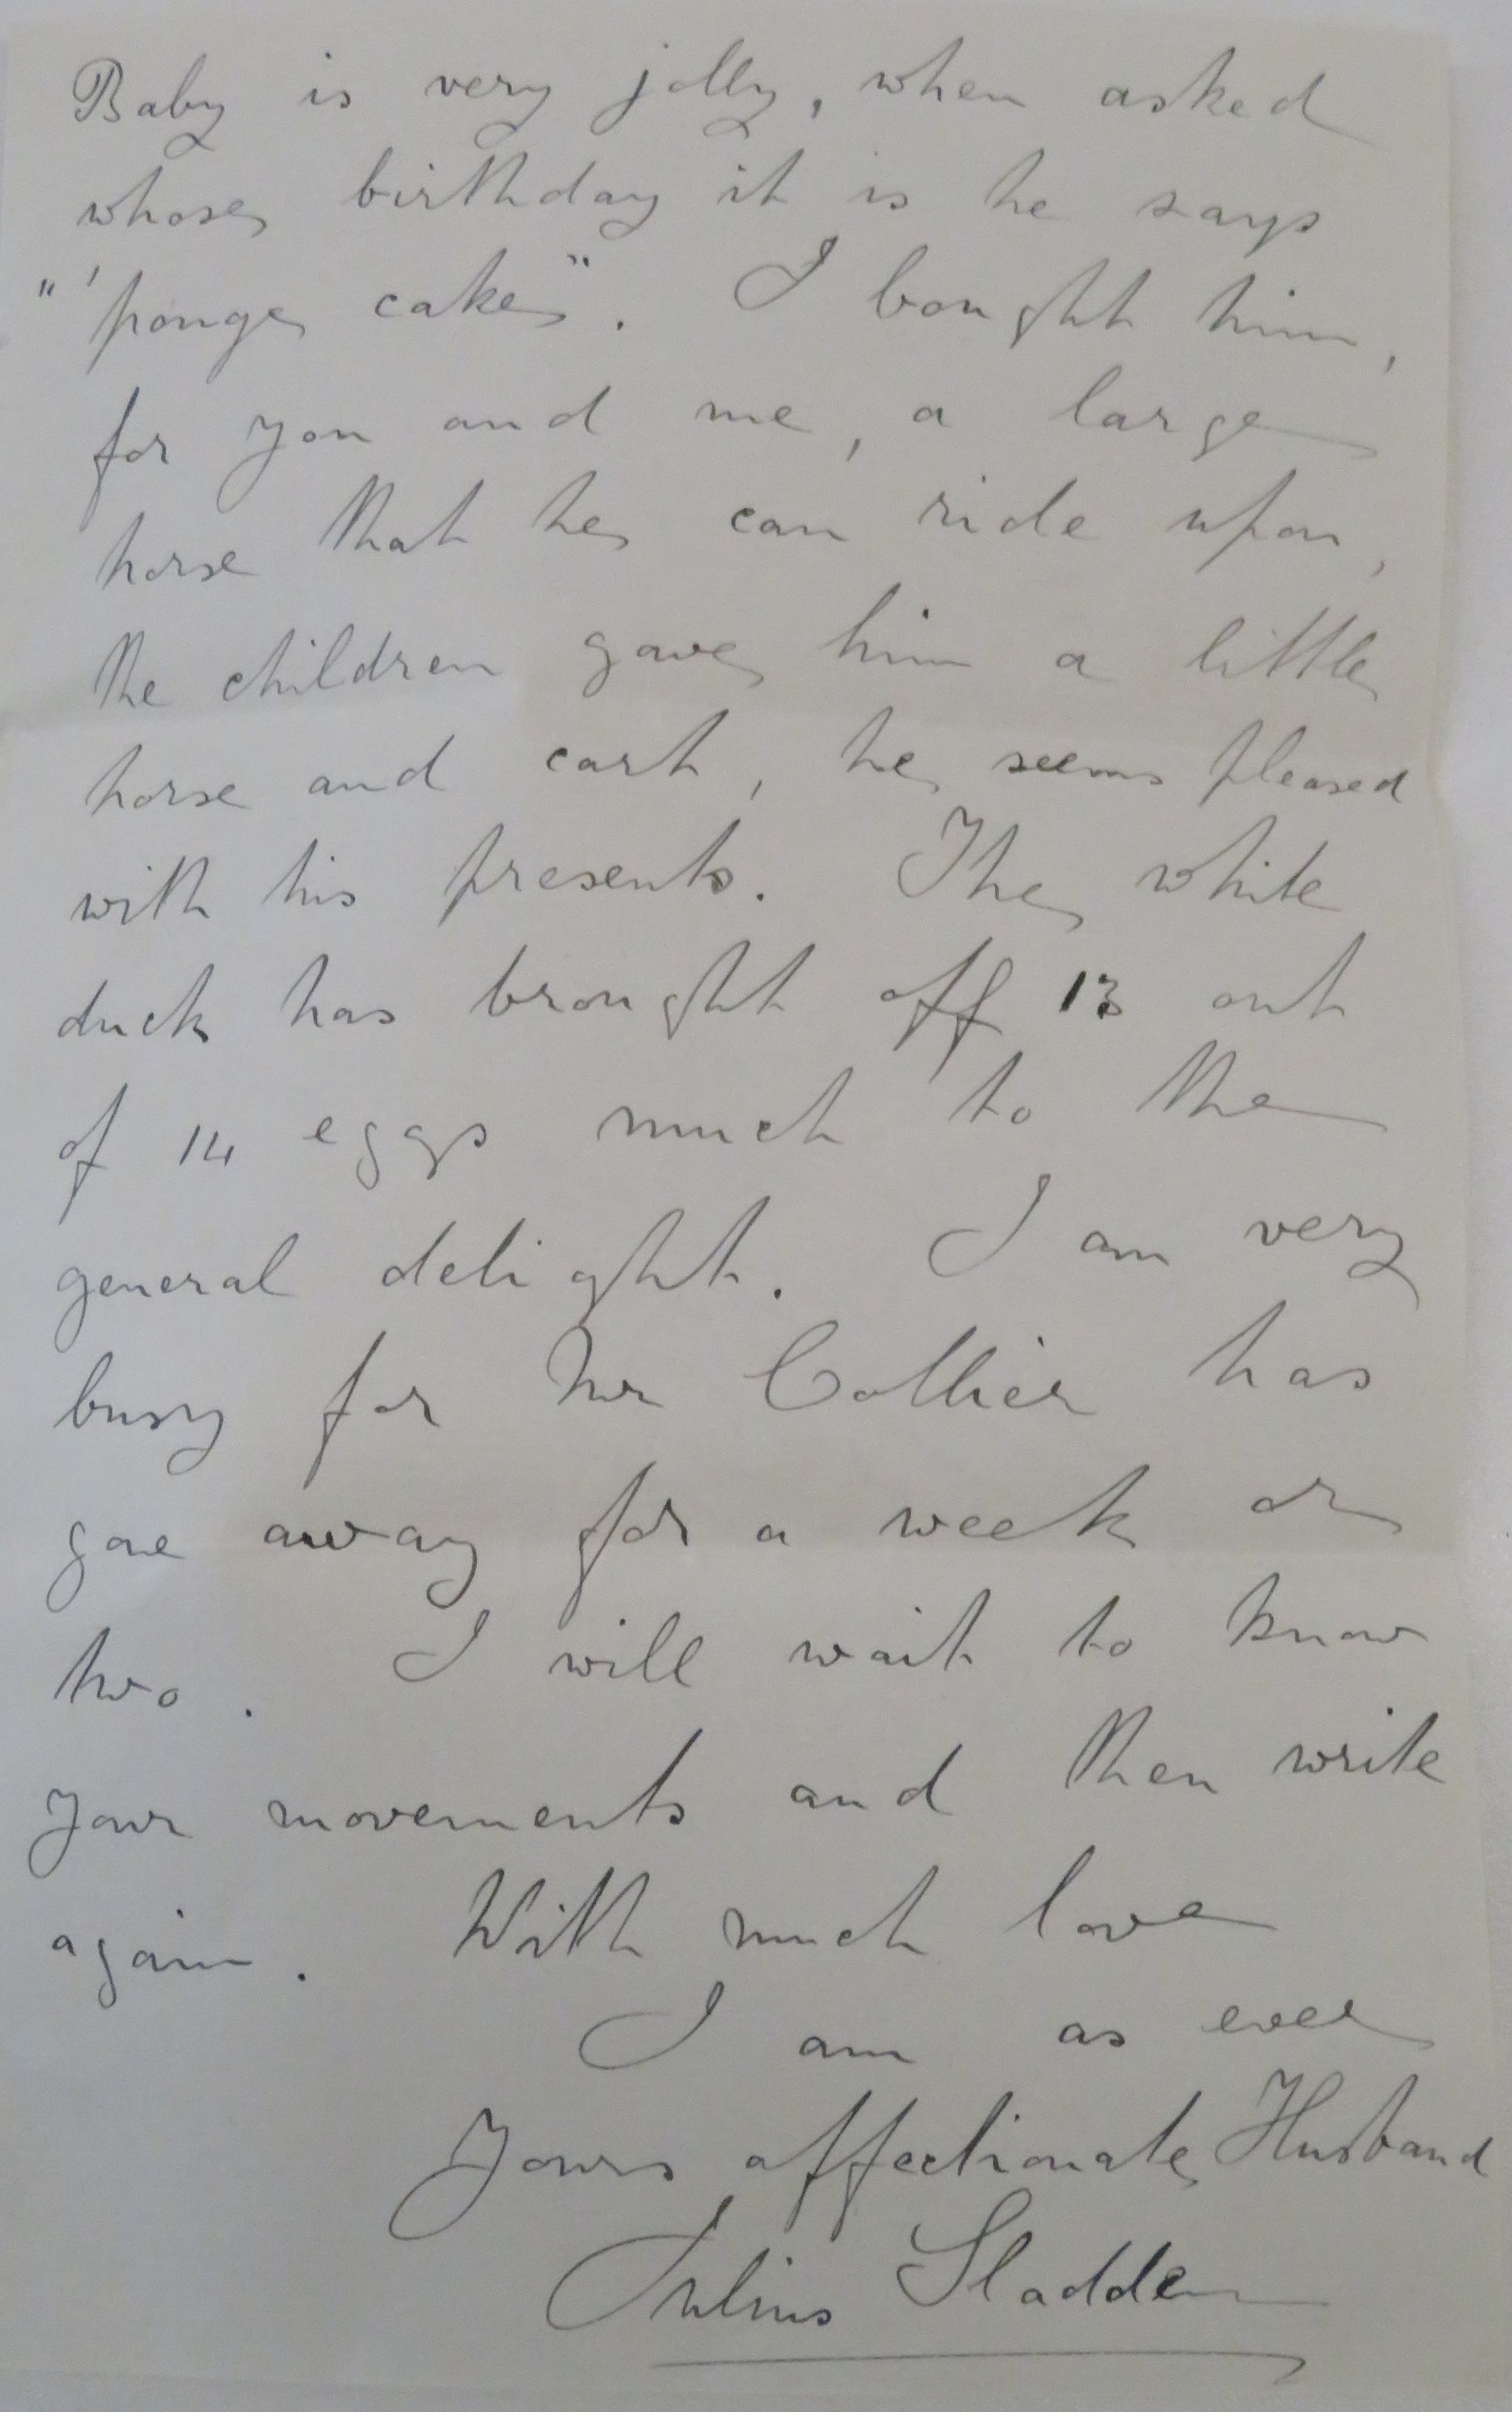 Baby is very jolly, when asked
whose birthday it is he says
"'ponge cake". I bought him,
for you and me, a large
horse that he can ride upon,
the children gave him a little
horse and cart, he seems pleased
with his presents. The white
duck has brought off 13 out
of 14 eggs much to the
general delight. I am very
busy for Mr Collier has
gone away for a week or
two. I will wait to know
your movements and then write
again. With much love
I am as ever
Yours affectionate Husband
Julius Sladden